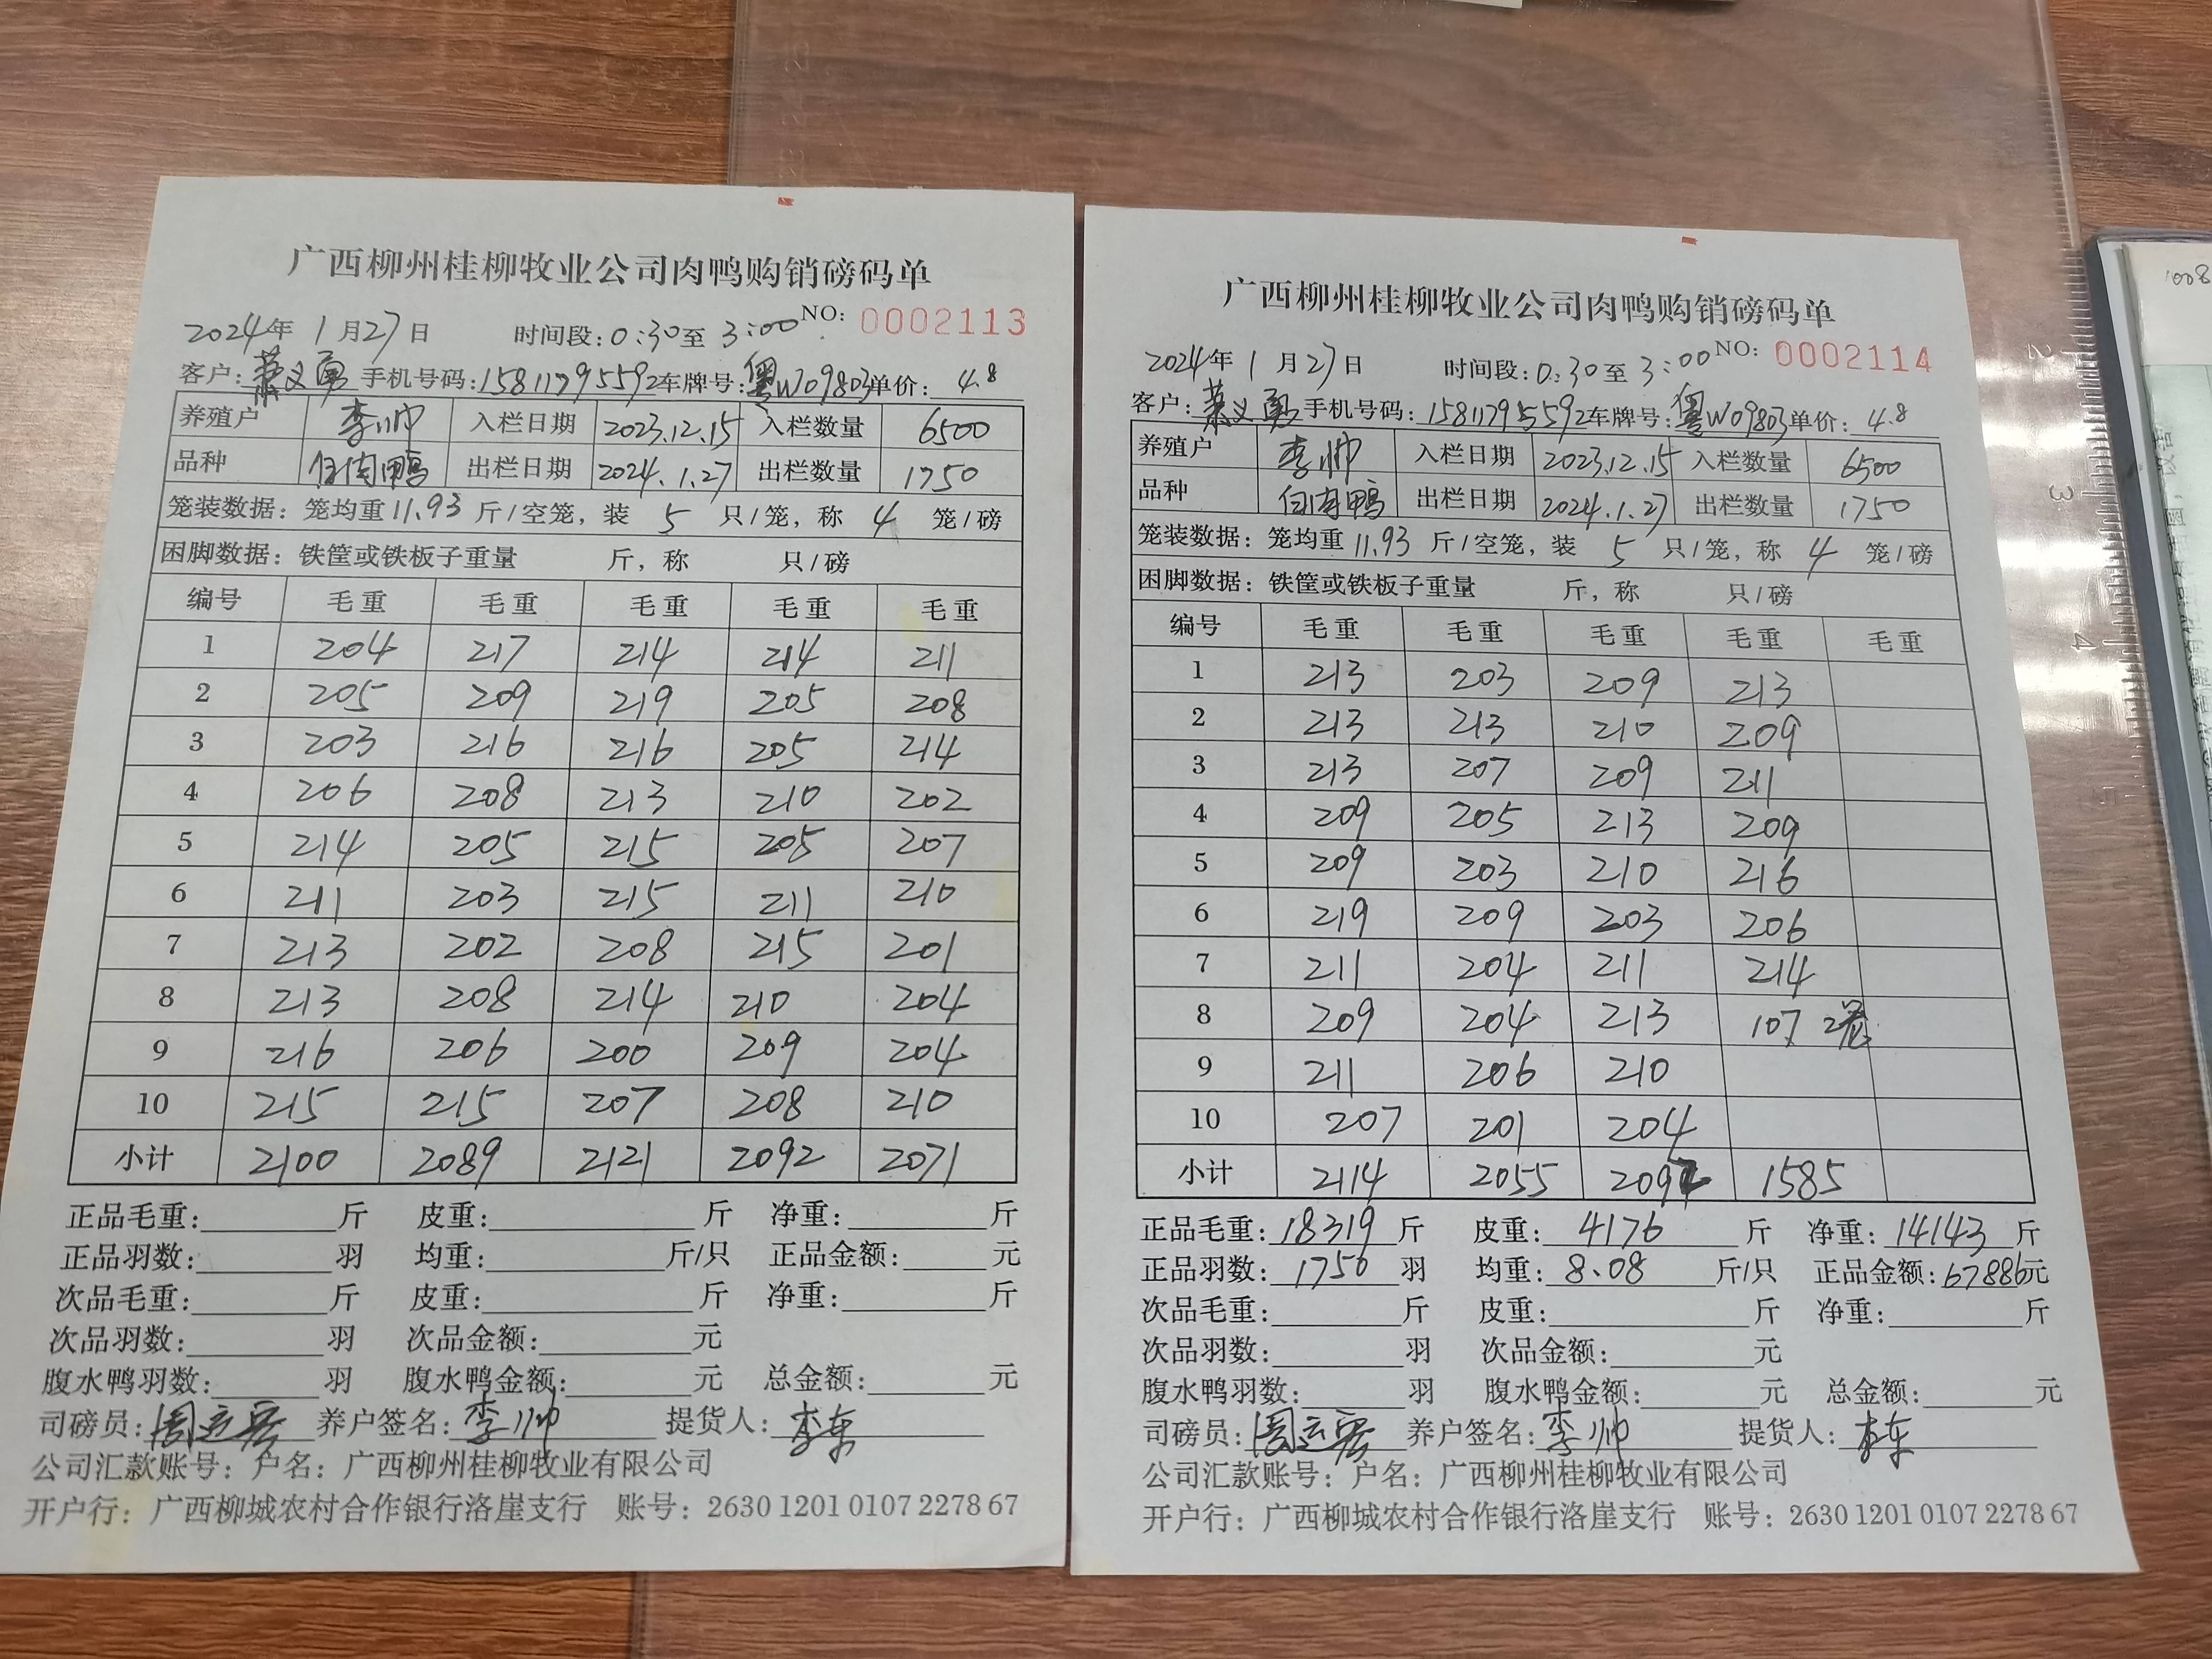 广西柳州桂柳牧业公司肉鸭购销磅码单
2024年 1月27日 时间段:0:30至3:00 NO: 0002113
客户: 义勇 手机号码:15811795592 车牌号:粤W09803 单价: 4.8
养殖户 李帅 入栏日期 2023.12.15 入栏数量 6500
品种 白肉鸭 出栏日期 2024.1.27 出栏数量 1750
笼装数据:笼均重11.93斤/空笼,装 5 只/笼,称 4 笼/磅
困脚数据:铁筐或铁板子重量 斤,称 只/磅
编号 毛重 毛重 毛重 毛重 毛重
1 204 217 214 214 211
2 205 209 219 205 208
3 203 216 216 205 214
4 206 208 213 210 202
5 214 205 215 205 207
6 211 203 215 211 210
7 213 202 208 215 201
8 213 208 214 210 204
9 216 206 200 209 204
10 215 215 207 208 210
小计 2100 2089 2121 2092 2071
正品毛重: 斤 皮重: 斤 净重: 斤
正品羽数: 羽 均重: 斤/只 正品金额: 元
次品毛重: 斤 皮重: 斤 净重: 斤
次品羽数: 羽 次品金额: 元
腹水鸭羽数: 羽 腹水鸭金额: 元 总金额: 元
司磅员: 周 养户签名:李帅 提货人:李东
公司汇款账号:户名:广西柳州桂柳牧业有限公司
开户行:广西柳城农村合作银行洛崖支行 账号:2630 1201 0107 2278 67
广西柳州桂柳牧业公司肉鸭购销磅码单
2024年 1月27日 时间段:0:30至3:00 NO: 0002114
客户: 义勇 手机号码:15811795592 车牌号:粤W09803 单价:4.8
养殖户 李帅 入栏日期 2023.12.15 入栏数量 6500
品种 白肉鸭 出栏日期 2024.1.27 出栏数量 1750
笼装数据:笼均重11.93斤/空笼,装 5 只/笼,称 4 笼/磅
困脚数据:铁筐或铁板子重量 斤,称 只/磅
编号 毛重 毛重 毛重 毛重 毛重
1 213 203 209 213
2 213 213 210 209
3 213 207 209 211
4 209 205 213 209
5 209 203 210 216
6 219 209 203 206
7 211 204 211 214
8 209 204 213 107 2笼
9 211 206 210
10 207 201 204
小计 2114 2055 2092 1585
正品毛重:18319斤 皮重:4176斤 净重:14143斤
正品羽数:1750羽 均重:8.08斤/只 正品金额:67886元
次品毛重: 斤 皮重: 斤 净重: 斤
次品羽数: 羽 次品金额: 元
腹水鸭羽数: 羽 腹水鸭金额: 元 总金额: 元
司磅员: 周 养户签名:李帅 提货人:李东
公司汇款账号:户名:广西柳州桂柳牧业有限公司
开户行:广西柳城农村合作银行洛崖支行 账号:2630 1201 0107 2278 67
1008
2
3
4
5